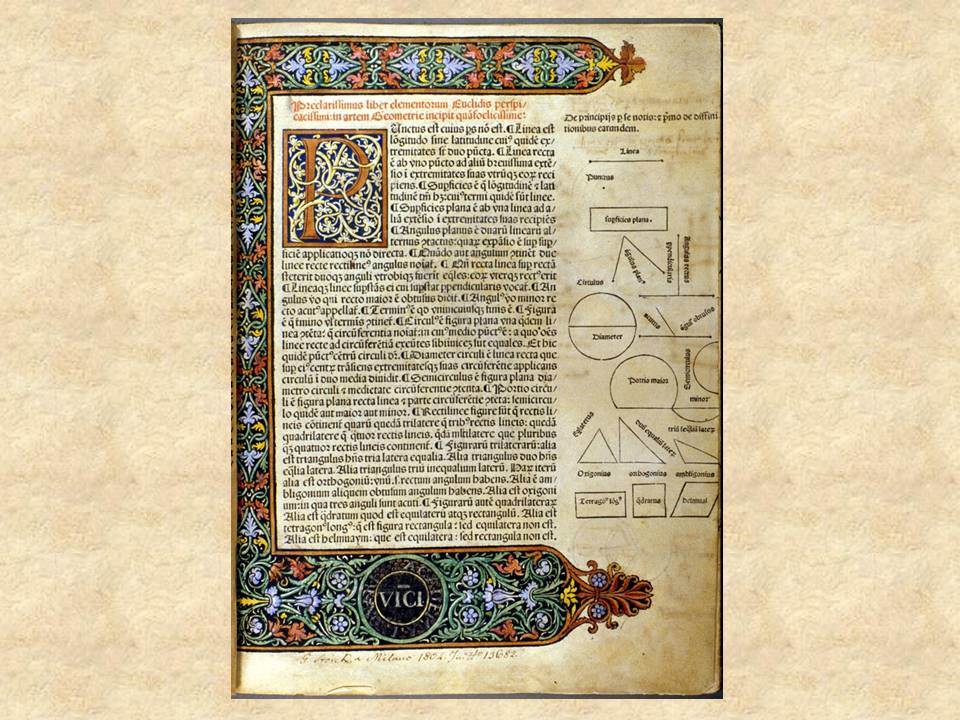 Preclarissimus liber elementorum Euclidis perspi⸗
cacissimi: in artem Geometrie incipit quãfoelicissime:
PUnctus est cuius ps nõ est. ¶ Linea est
lõgitudo sine latitudine cuiꝰ quidẽ ex⸗
tremitates sr̃ duo pũcta. ¶ Linea recta
ẽ ab vno pũcto ad aliũ breuissima extẽ⸗
sio ĩ extremitates suas vtrũqꝫ eoꝝ reci
piens. ¶ Supficies ẽ q̃ lõgitudinẽ ⁊ lati
tudinẽ tm̃ hꝫ: cuiꝰ termi quidẽ sũt linee.
¶ Supficies plana ẽ ab vna linea ad a⸗
liã extẽsio ĩ extremitates suas recipiẽs
¶ Angulus planus ẽ duarũ linearũ al⸗
ternus ꝯtactus: quaꝝ expãsio ẽ sup sup⸗
ficiẽ applicatioqꝫ nõ directa. ¶ Quãdo aut angulum ꝯtinẽt due
linee recte rectilineꝰ angulus noiat̃. ¶ Qñ recta linea sup rectã
steterit duoqꝫ anguli vtrobiqꝫ fuerit eq̃les: eoꝝ vterqꝫ rectꝰ erit
¶ Lineaqꝫ linee supstãs ei cui supstat ppendicularis vocat̃. ¶ An
gulus vo qui recto maior ẽ obtusus dicit̃. ¶ Angulꝰ vo minor re
cto acutꝰ appellat̃. ¶ Terminꝰ ẽ qd vniuscuiusqꝫ finis ẽ. ¶ Figura
ẽ q̃ tmino vl terminis ꝯtinet̃. ¶ Circulꝰ ẽ figura plana vna qdem li⸗
nea ꝯtẽta: q̃ circũferentia noiat̃: in cuiꝰ medio pũctꝰ ẽ: a quo oẽs
linee recte ad circũferẽtiã exeũtes sibiinuicẽ sut equales. Et hic
quidẽ pũctꝰ cẽtrũ circuli dr̃. ¶ Diameter circuli ẽ linea recta que
sup eiꝰ centꝝ trãsiens extremitatesqꝫ suas circũferẽtie applicans
circulũ ĩ duo media diuidit. ¶ Semicirculus ẽ figura plana dia⸗
metro circuli ⁊ medietate circũferentie ꝯtenta. ¶ Portio circu⸗
li ẽ figura plana recta linea ⁊ parte circũferẽtie ꝯtẽta: semicircu⸗
lo quidẽ aut maior aut minor. ¶ Rectilinee figure sũt q̃ rectis li⸗
neis cõtinent̃ quarũ quedã trilatere q̃ tribꝰ rectis lineis: quedã
quadrilatere q̃ qtuor rectis lineis. qdã mltilatere que pluribus
qꝫ quatuor rectis lineis continent̃. ¶ Figurarũ trilaterarũ: alia
est triangulus hñs tria latera equalia. Alia triangulus duo hñs
eq̃lia latera. Alia triangulus triũ inequalium laterũ. Haꝝ iterũ
alia est orthogoniũ: vnũ .s. rectum angulum habens. Alia ẽ am⸗
bligonium aliquem obtusum angulum habens. Alia est oxigoni
um: in qua tres anguli sunt acuti. ¶ Figurarũ autẽ quadrilateraꝝ
Alia est q̃dratum quod est equilaterũ atqꝫ rectangulũ. Alia est
tetragonꝰ longꝰ: q̃ est figura rectangula: sed equilatera non est.
Alia est helmuaym: que est equilatera: sed rectangula non est.
De principijs p se notis: ⁊ pmo de diffini
tionibus earandem.
Linea
Punctus
supficies plana.
Circulus
Diameter
Portio maior
Semicirculus
minor
Oxigonius
orthogonius
ambligonius
Tetragonꝰ lõgꝰ
q̃dratus
helmuaỹ
VICI
Milano 1804
13682